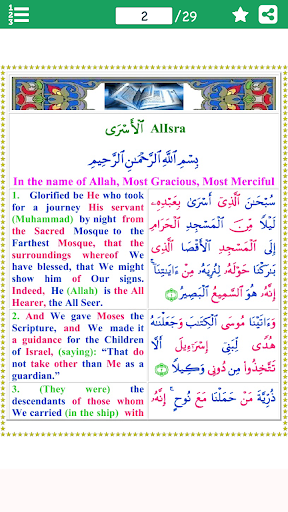 1
2
3
2 /29
ٱلْأَسْرَى AlIsra
بِسْمِ ٱللَّهِ ٱلرَّحْمَٰنِ ٱلرَّحِيمِ
In the name of Allah, Most Gracious, Most Merciful
1. Glorified be He who took
for a journey His servant
(Muhammad) by night from
the Sacred Mosque to the
Farthest Mosque, that the
surroundings whereof We
have blessed, that We might
show him of Our signs.
Indeed, He (Allah) is the All
Hearer, the All Seer.
سُبْحَٰنَ ٱلَّذِىٓ أَسْرَىٰ بِعَبْدِهِۦ
لَيْلًا مِّنَ ٱلْمَسْجِدِ ٱلْحَرَامِ
إِلَى ٱلْمَسْجِدِ ٱلْأَقْصَا ٱلَّذِى
بَٰرَكْنَا حَوْلَهُۥ لِنُرِيَهُۥ مِنْ ءَايَٰتِنَآ ۚ
إِنَّهُۥ هُوَ ٱلسَّمِيعُ ٱلْبَصِيرُ ۝١
2. And We gave Moses the
Scripture, and We made it
a guidance for the Children
of Israel, (saying): “That do
not take other than Me as a
guardian.”
وَءَاتَيْنَا مُوسَى ٱلْكِتَٰبَ وَجَعَلْنَٰهُ
هُدًى لِّبَنِىٓ إِسْرَٰٓءِيلَ أَلَّا
تَتَّخِذُوا۟ مِن دُونِى وَكِيلًا ۝٢
3. (They were) the
descendants of those whom
We carried (in the ship) with
ذُرِّيَّةَ مَنْ حَمَلْنَا مَعَ نُوحٍ ۚ إِنَّهُۥ